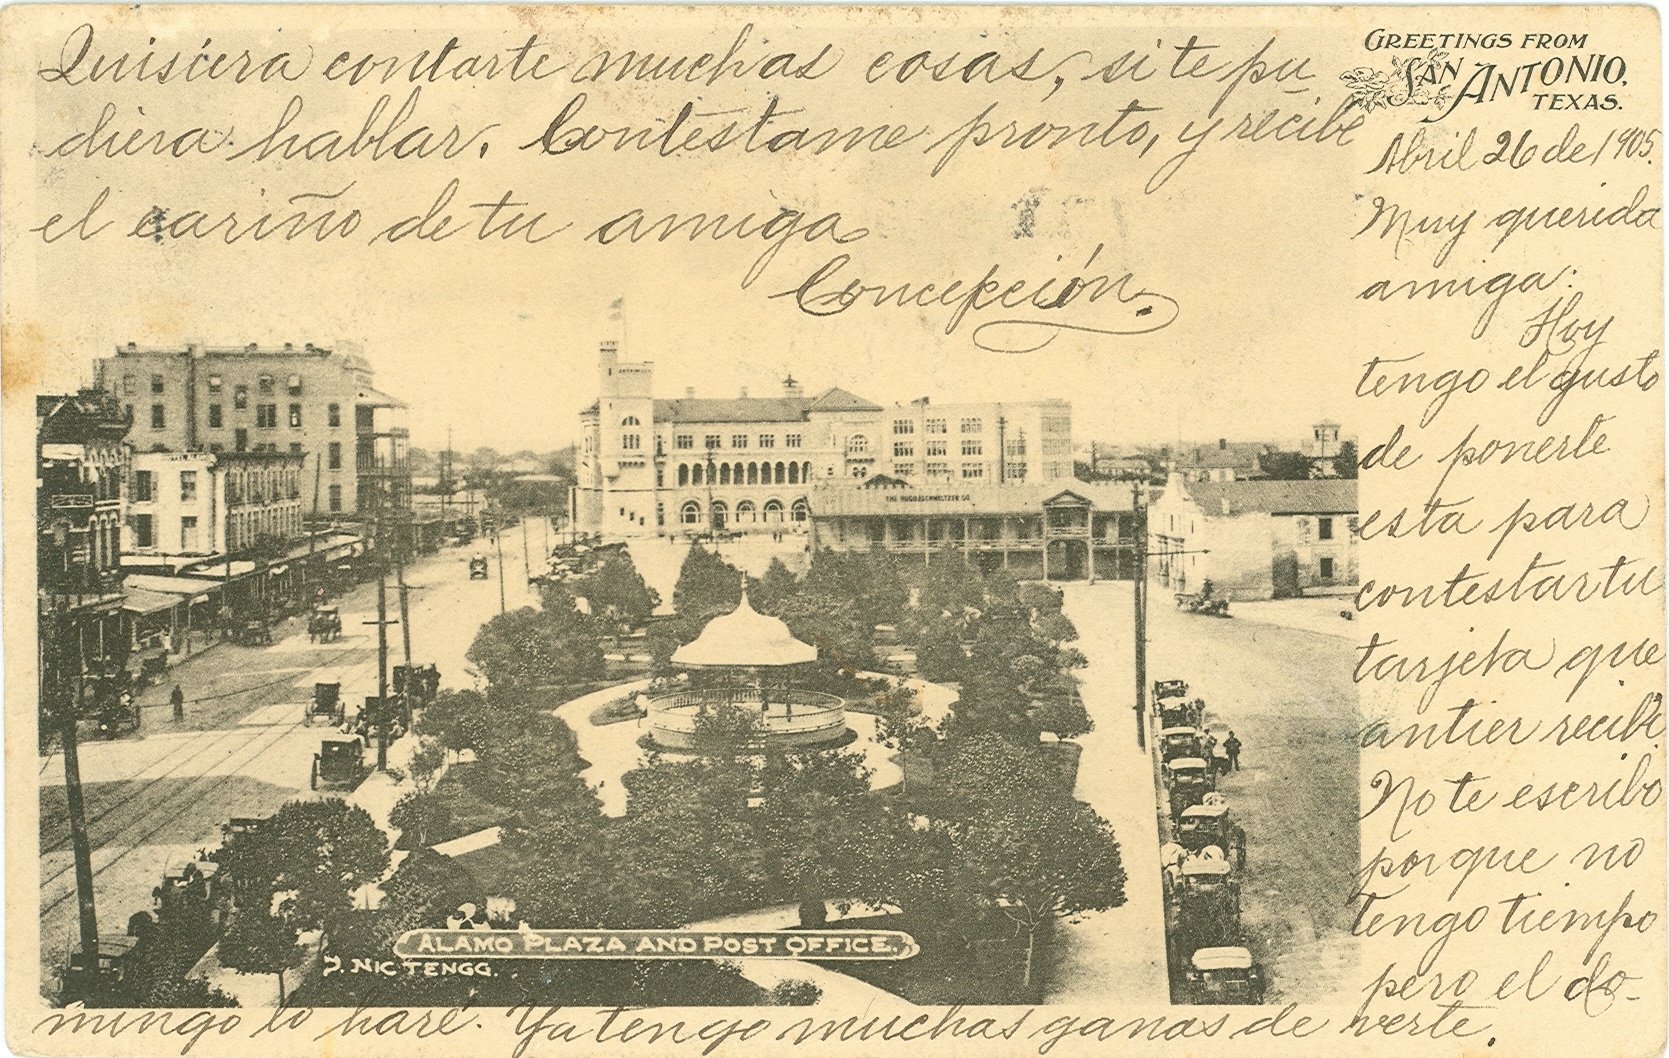 GREETINGS FROM
SAN ANTONIO,
TEXAS.
Abril 26 de 1905.
Muy querida
amiga:
Hoy
tengo el gusto
de ponerte
esta para
contestar tu
tarjeta que
antier recibí.
No te escribo
porque no
tengo tiempo
pero el do-
mingo lo haré. Ya tengo muchas ganas de verte.
Quisiera contarte muchas cosas, si te pu-
diera hablar. Contéstame pronto, y recibe
el cariño de tu amiga
Concepción.
THE HUGO & SCHMELTZER CO
ALAMO PLAZA AND POST OFFICE.
J. NIC TENGG.